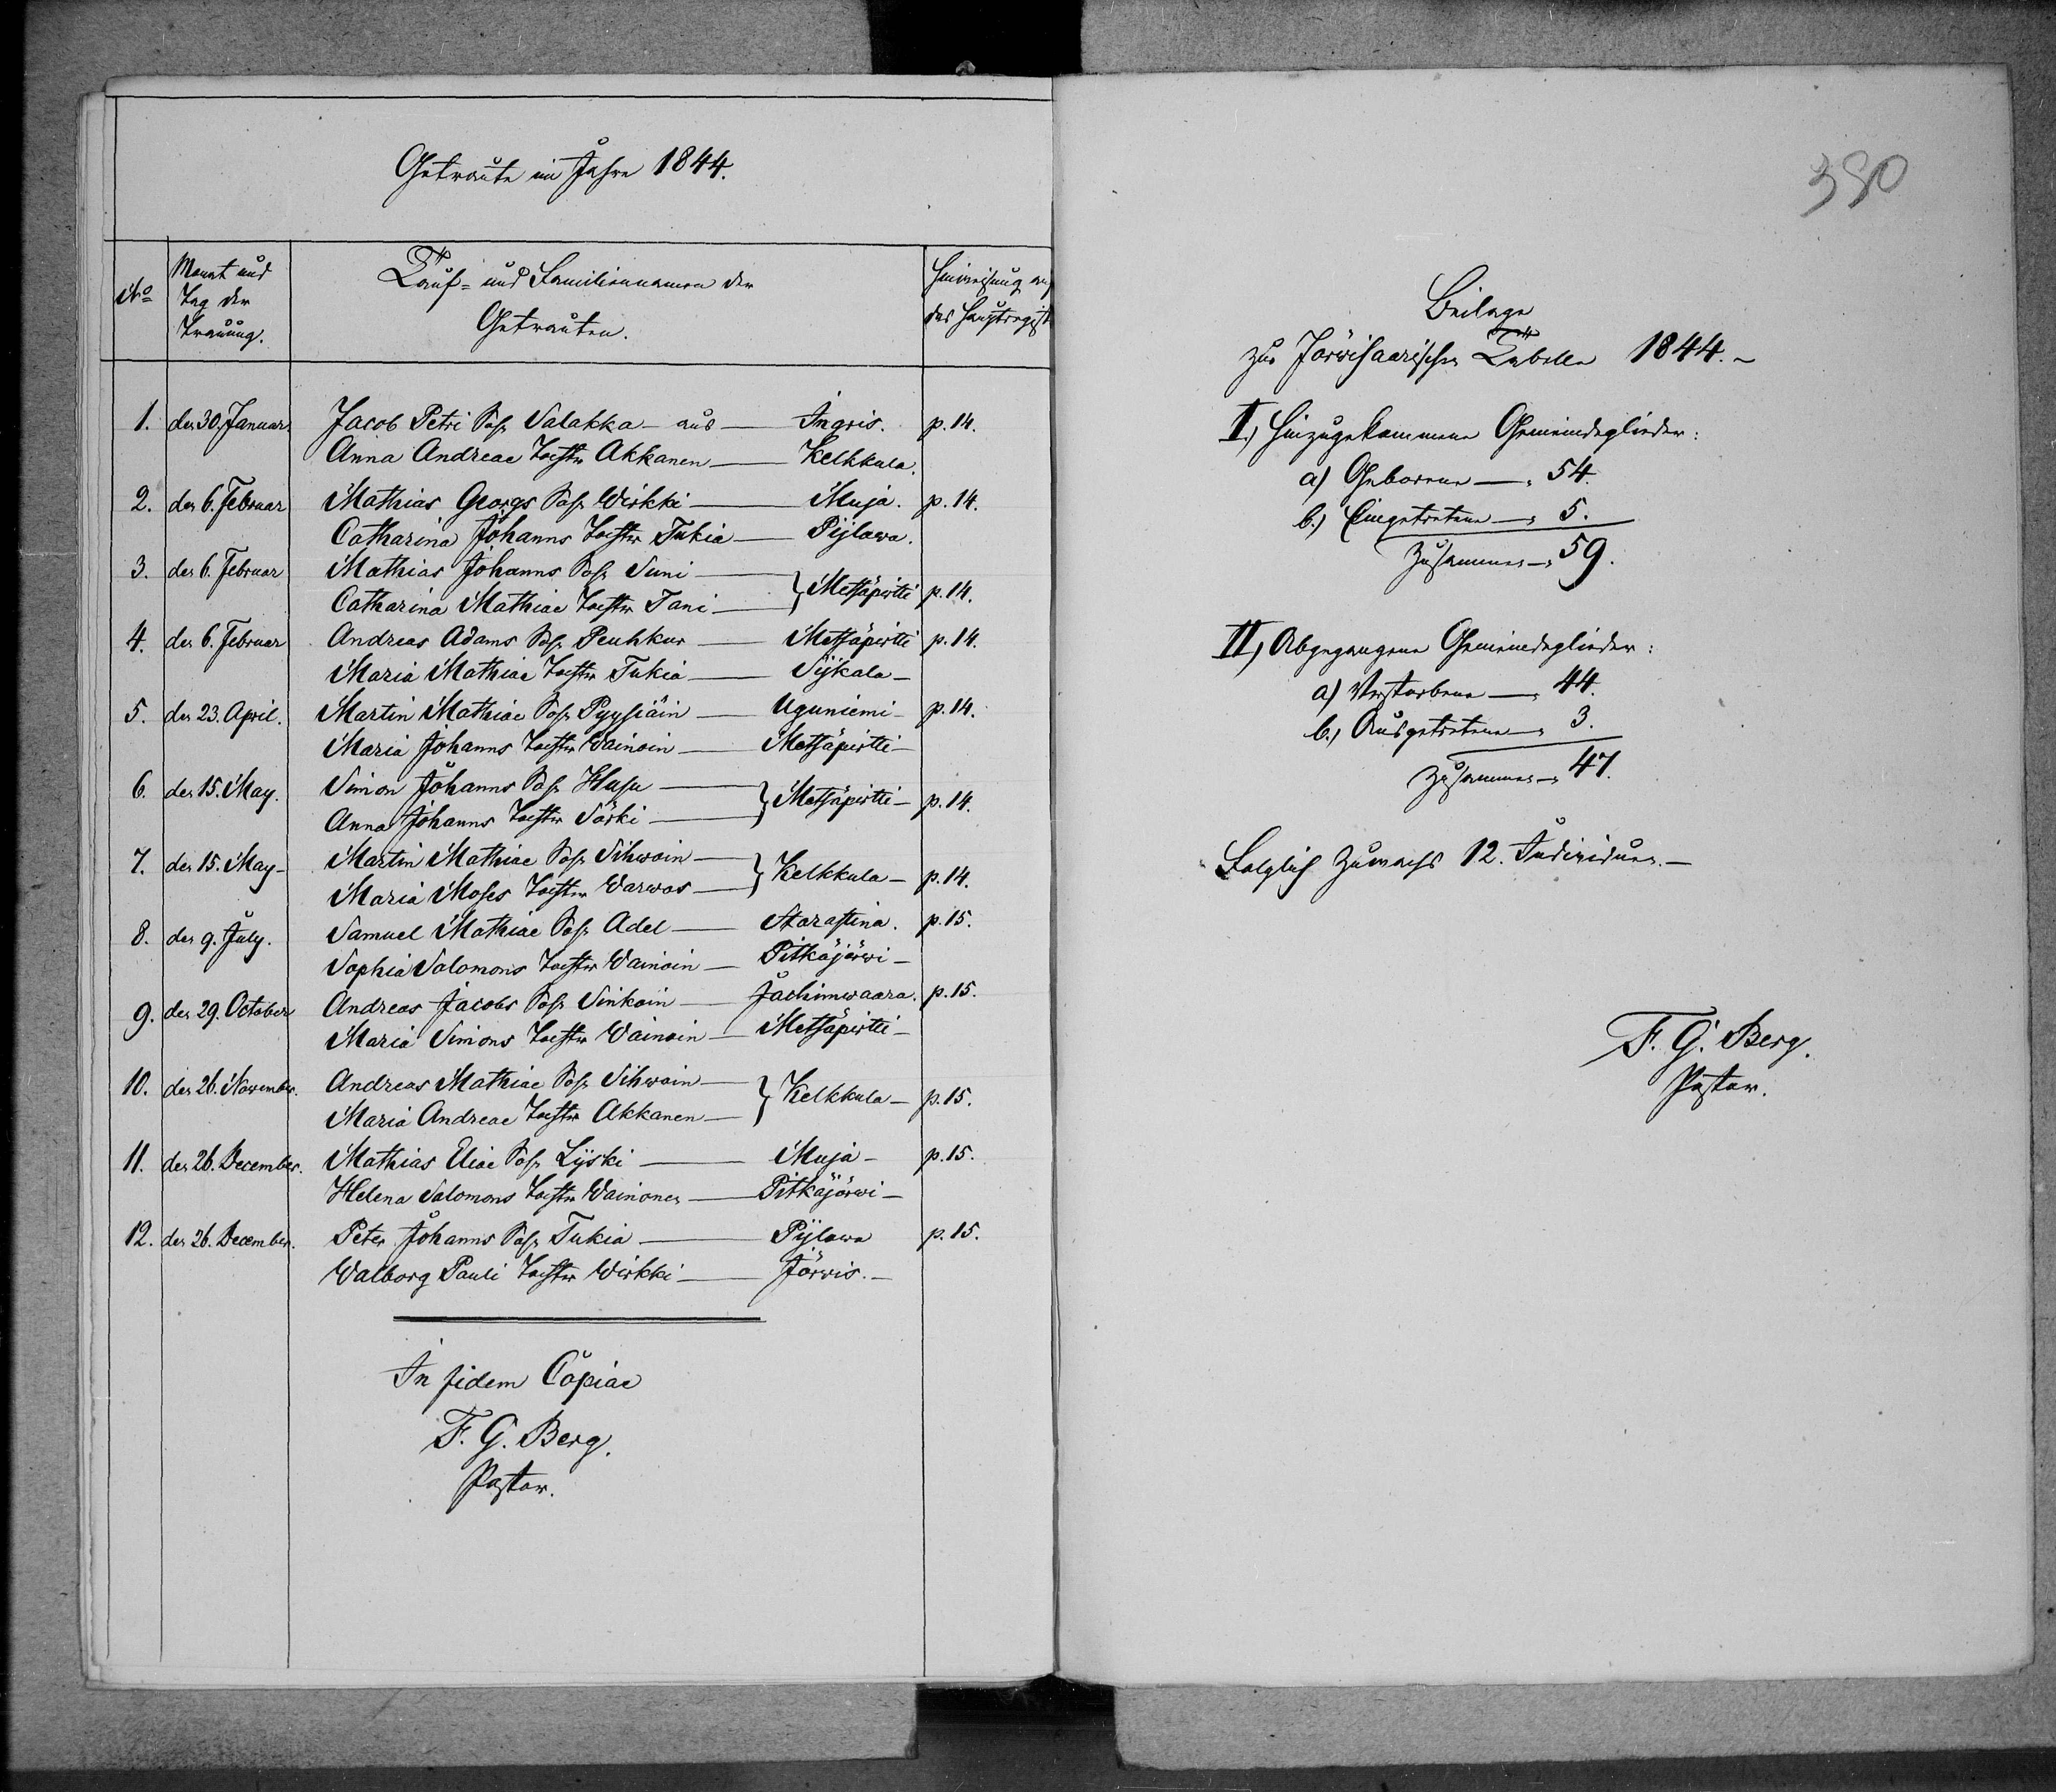 Getraute im Jahre 1844.
No
Monat und
Tag der
Trauung.
Tauf- und Familiennamen der
Getrauten.
Hinweisung auf
das Hauptregist
1. den 30. Januar. Jacob Petri Sohn Salakka - aus - Ingris. p. 14.
Anna Andreae Tochter Akkanen - Kelkkala.
2. den 6. Februar Mathias Georgs Sohn Wirkki - Muja. p. 14.
Catharina Johanns Tochter Tukia - Pijlawa.
3. den 6. Februar Mathias Johanns Sohn Suni -
Catharina Mathiae Tochter Tani - } Metsäpirtti p. 14.
4. den 6. Februar Andreas Adams Sohn Peuhkur - Metsäpirtti p. 14.
Maria Mathiae Tochter Tukia - Sijkala -
5. den 23. April. Martin Mathiae Sohn Pyysiäin - Uguniemi - p. 14.
Maria Johanns Tochter Wainoin - Metsäpirtti -
6. den 15. May. Simon Johanns Sohn Husu -
Anna Johanns Tochter Särki - } Metsäpirtti - p. 14.
7. den 15. May - Martin Mathiae Sohn Sihwoin -
Maria Moses Tochter Warwas - } Kelkkula - p. 14.
8. den 9. July. Samuel Mathiae Sohn Adel - Starastina. p. 15.
Sophia Salomons Tochter Wainoin - Pitkäjärwi -
9. den 29. October Andreas Jacobs Sohn Sinkoin - Jachimwaara. p. 15.
Maria Simons Tochter Wainoin - Metsäpirtti -
10. den 26. November. Andreas Mathiae Sohn Sihwoin -
Maria Andreae Tochter Akkanen - } Kelkkula - p. 15.
11. den 26. December. Mathias Eliae Sohn Lyski - Muja - p. 15.
Helena Salomons Tochter Wainonen - Pitkäjärwi -
12. den 26. December. Peter Johanns Sohn Tukia - Pijlawa p. 15.
Walborg Pauli Tochter Wirkki - Järwis. -
In fidem Copiae
F. G. Berg.
Pastor.
380
Beilage
zur Järwisaarischen Tabelle 1844. -
I.) Hinzugekommene Gemeindeglieder:
a) Geborene - 54.
b.) Eingetretene - 5.
Zusammen - 59.
II) Abgegangene Gemeindeglieder:
a) Verstorbene - 44.
b.) Ausgetretene - 3.
Zusammen - 47.
Folglich Zuwachs 12. Individuen. -
F. G. Berg.
Pastor.